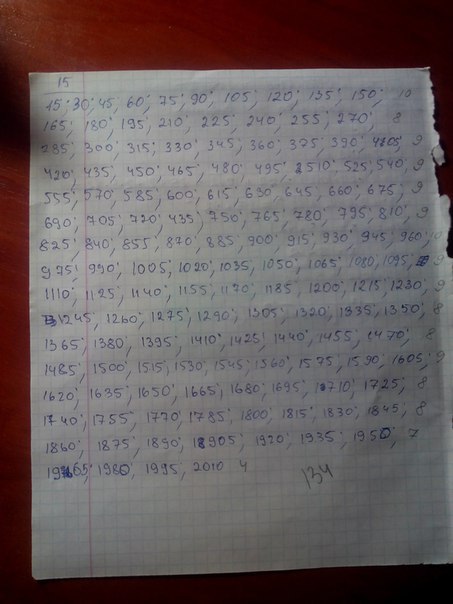 15
15; 30; 45; 60; 75; 90; 105; 120; 135; 150; 10
165; 180; 195; 210; 225; 240; 255; 270; 8
285; 300; 315; 330; 345; 360; 375; 390; 405; 9
420; 435; 450; 465; 480; 495; 510; 525; 540; 9
555; 570; 585; 600; 615; 630; 645; 660; 675; 9
690; 705; 720; 435; 750; 765; 780; 795; 810; 9
825; 840; 855; 870; 885; 900; 915; 930; 945; 960; 10
975; 990; 1005; 1020; 1035; 1050; 1065; 1080; 1095; 9
1110; 1125; 1140; 1155; 1170; 1185; 1200; 1215; 1230; 9
1245; 1260; 1275; 1290; 1305; 1320; 1335; 1350; 8
1365; 1380; 1395; 1410; 1425; 1440; 1455; 1470; 8
1485; 1500; 1515; 1530; 1545; 1560; 1575; 1590; 1605; 9
1620; 1635; 1650; 1665; 1680; 1695; 1710; 1725; 8
1740; 1755; 1770; 1785; 1800; 1815; 1830; 1845; 8
1860; 1875; 1890; 1905; 1920; 1935; 1950; 7
1965; 1980; 1995; 2010 4
134